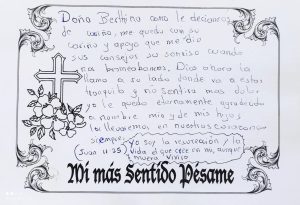 Doña Berthina como le decíamos
de cariño, me quedo con su
cariño y apoyo que me dio
sus consejos su sonrisa cuando
bromeabamos, Dios ahora la
llama a su lado donde va a estar
tranquila y no sentira mas dolor
yo le quedo eternamente agradecida
de mi y de mis hijos
la llevaremos en nuestros corazones
siempre.
Juan 11 25 yo soy la resurrección y la
vida el que cree en mi, aunque
muera vivira
Mi más Sentido Pésame